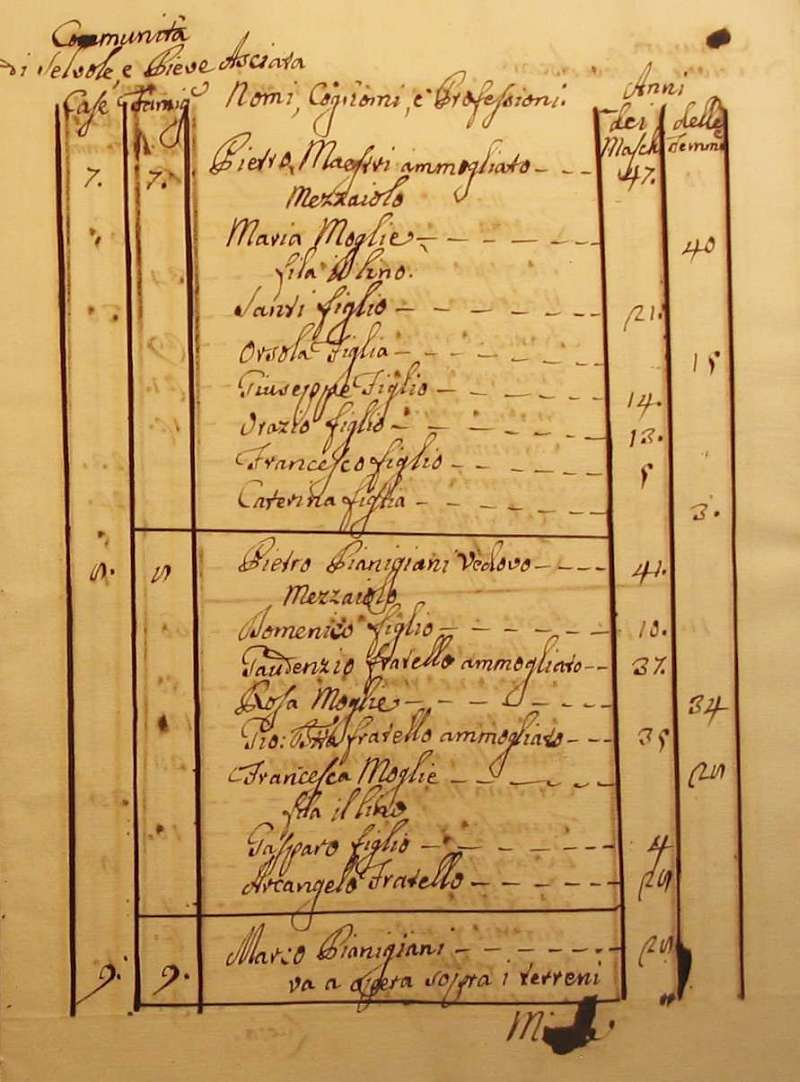 Communità
di Selvole, e Pieve Asciata
Case Famig Nomi, Cognomi, e Professioni. Anni
dei Masch delle Femmi
7. 7. Pietro Maestri ammogliato 47.
Mezzaiolo
Maria Moglie 40
fila il lino.
Santi figlio 21.
Orsola Figlia 15
Giuseppe Figlio 14.
Orazio figlio 13.
Francesco figlio 5
Caterina figlia 3.
8. 8 Pietro Pianigiani Vedovo 41.
Mezzaiolo
Domenico figlio 10.
Gaudenzio fratello ammogliato 37.
Rosa Moglie 34
Gio: Bta fratello ammogliato 35
Francesca Moglie 28
fila il lino
Gasparo figlio 4
Arcangelo Fratello 28
9. 9. Marco Pianigiani 28
va a opera sopra i terreni